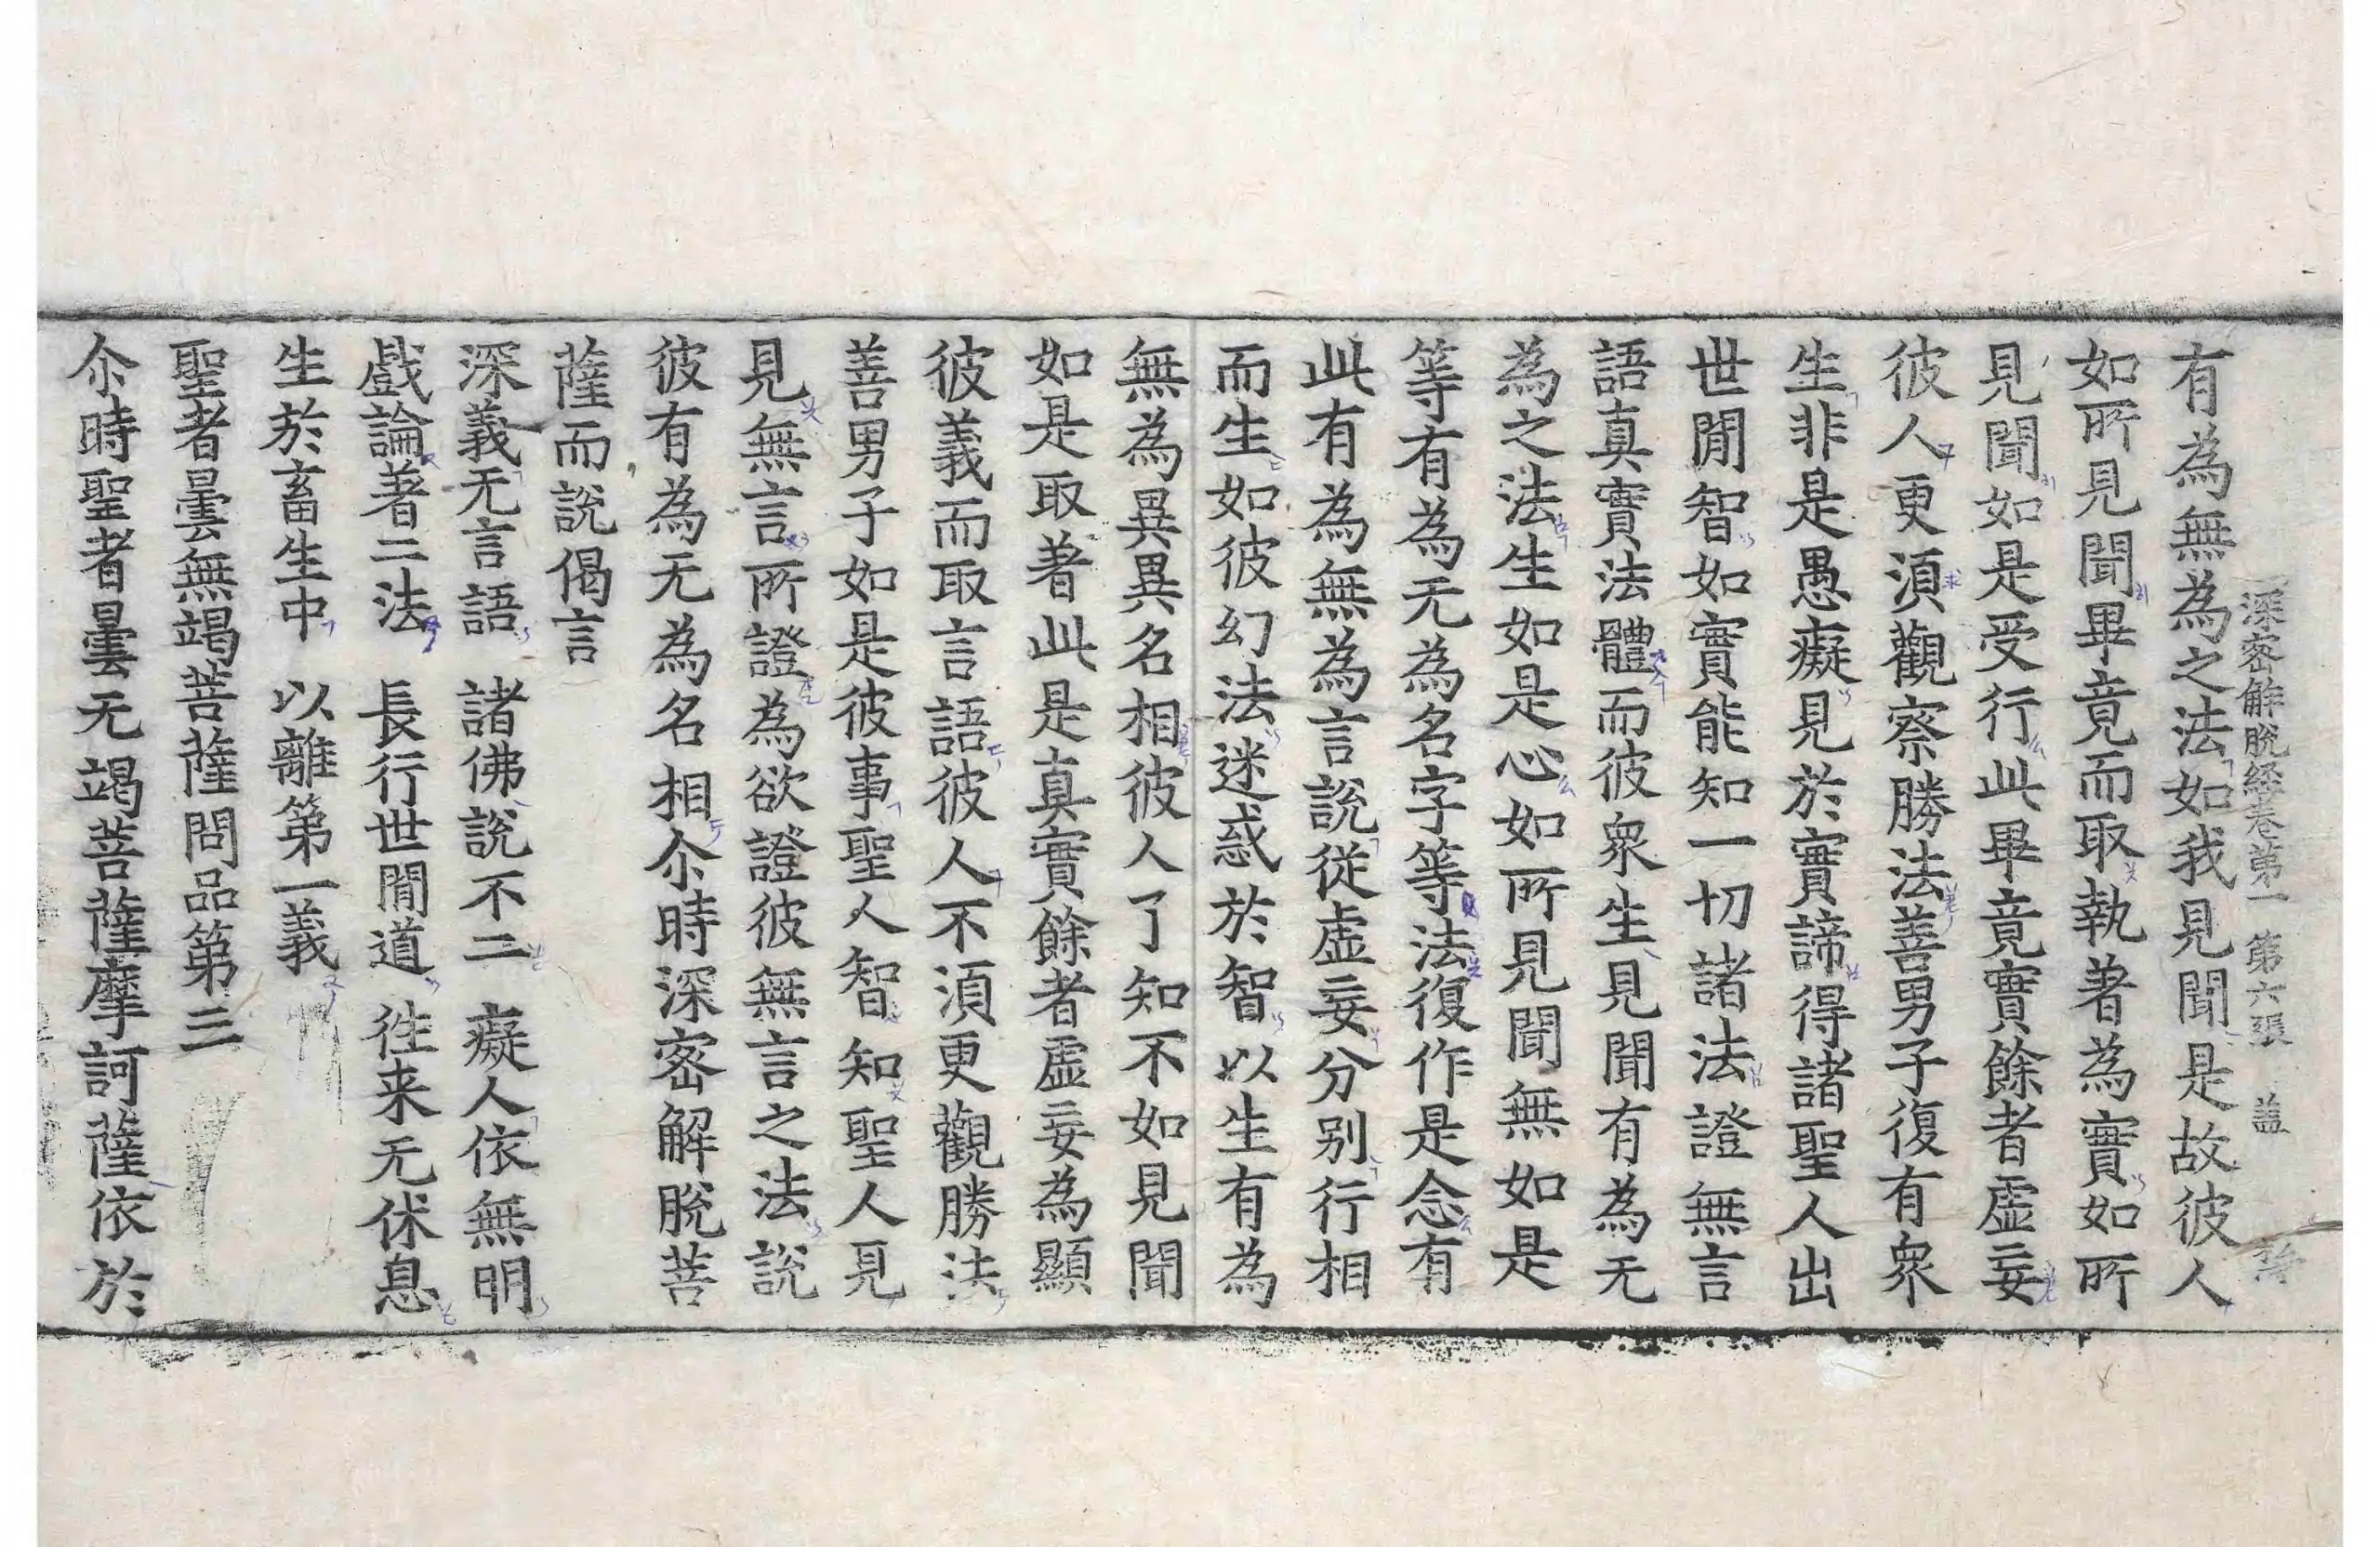 深密解脫経卷第一 第六張 盖
有為無為之法如我見聞是故彼人
如所見聞畢竟而取執著為實如所
見聞如是受行此畢竟實餘者虛妄
彼人更湏觀察勝法善男子復有衆
生非是愚癡見於實諦得諸聖人出
世閒智如實能知一切諸法證無言
語真實法體而彼衆生見聞有為无
為之法生如是心如所見聞無如是
等有為无為名字等法復作是念有
此有為無為言說從虛妄分别行相
而生如彼幻法迷惑於智以生有為
無為異異名相彼人了知不如見聞
如是取著此是真實餘者虛妄為顯
彼義而取言語彼人不湏更觀勝法
善男子如是彼事聖人智知聖人見
見無言所證為欲證彼無言之法說
彼有為无為名相尒時深密解脫菩
薩而說偈言
深義无言語 諸佛說不二 癡人依無明
戲論著二法 長行世閒道 往来无休息
生於畜生中 以離第一義
聖者曇無竭菩薩問品第三
尒時聖者曇无竭菩薩摩訶薩依於